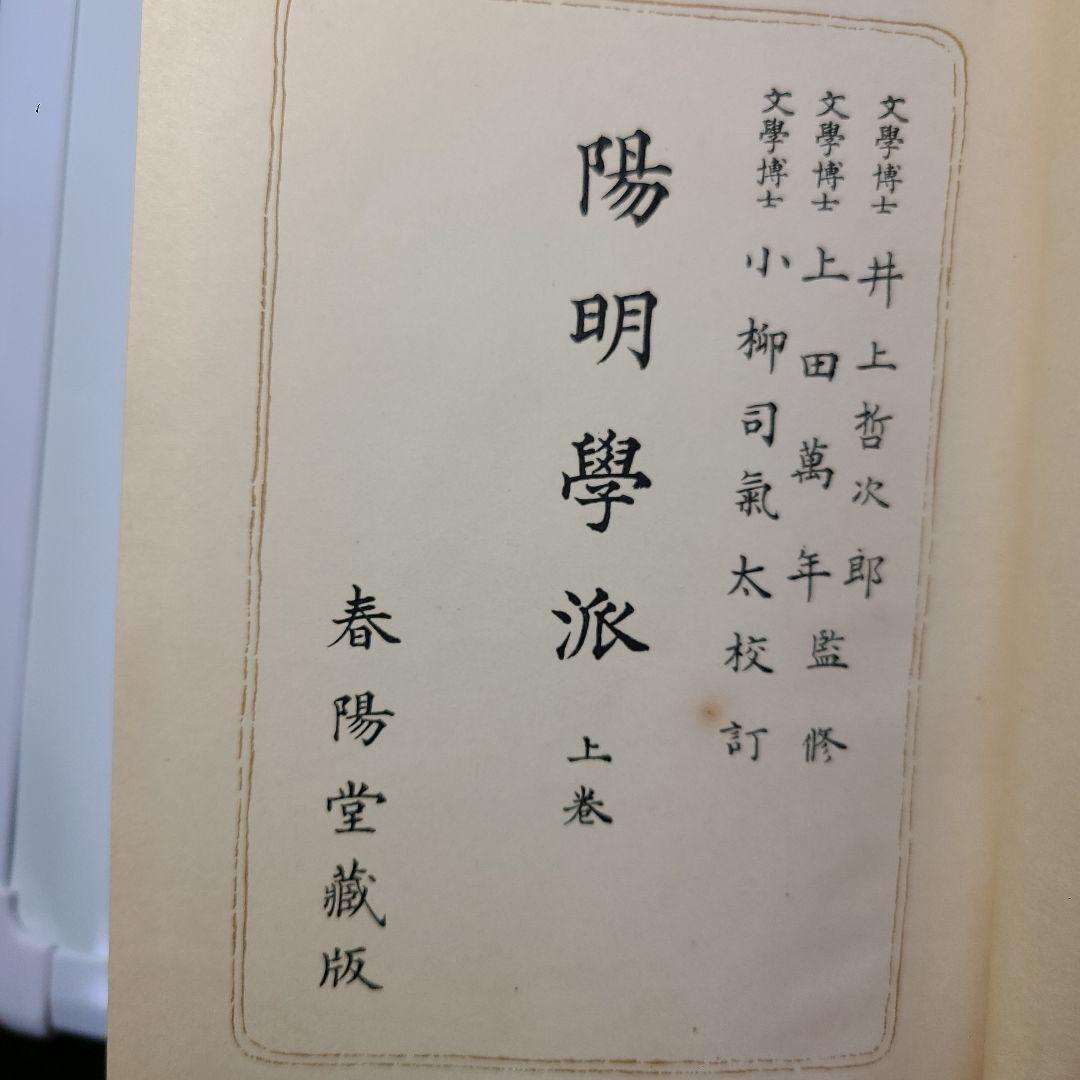 文學博士 井上哲次郎
文學博士 上田萬年監修
文學博士 小柳司氣太校訂
陽明學派 上卷
春陽堂藏版